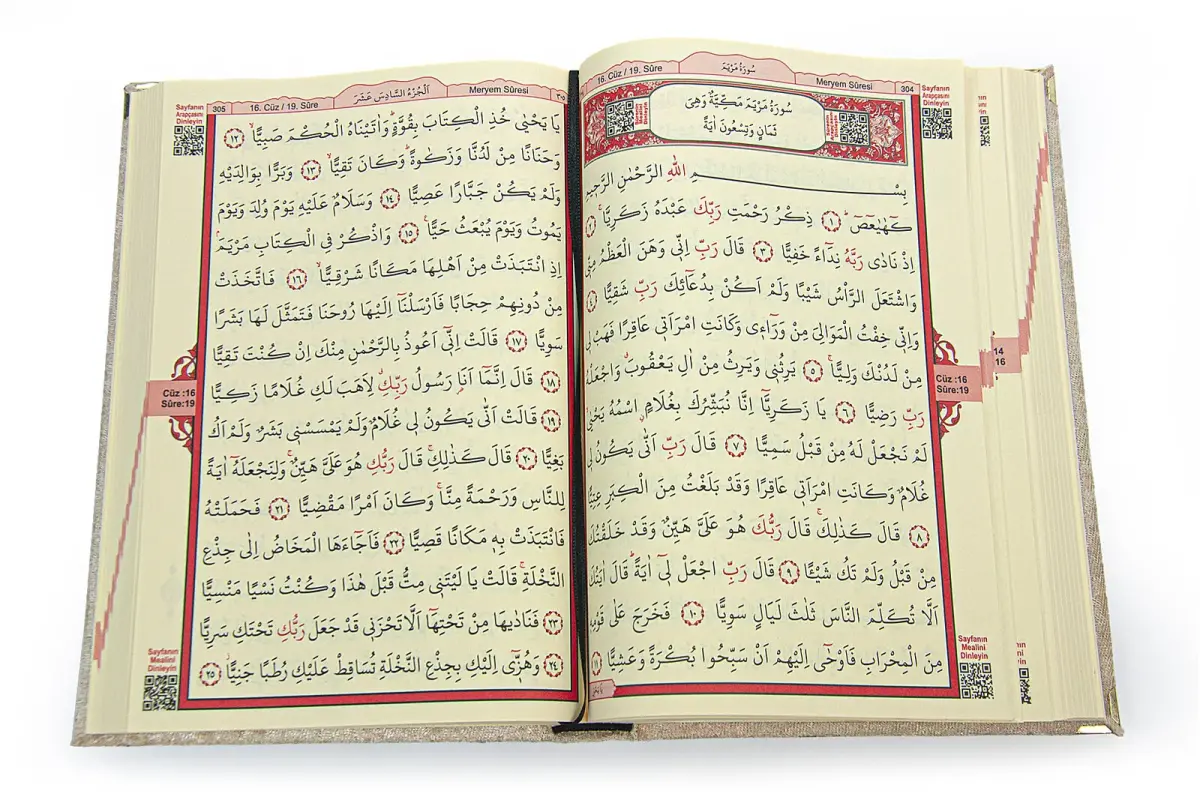 16. Cüz / 19. Sûre
سُورَةُ مَرْيَمَ
Meryem Sûresi
304
Sayfanın
Arapçasını
Dinleyin
سُورَةُ مَرْيَمَ مَكِّيَّةٌ وَهِيَ
ثَمَانٍ وَتِسْعُونَ اٰيَةً
بِسْمِ اللّٰهِ الرَّحْمٰنِ الرَّحِيمِ
كٓهٰيٰعٓصٓ ﴿١﴾ ذِكْرُ رَحْمَتِ رَبِّكَ عَبْدَهُ زَكَرِيَّا ﴿٢﴾
اِذْ نَادٰى رَبَّهُ نِدَٓاءً خَفِيًّا ﴿٣﴾ قَالَ رَبِّ اِنّ۪ي وَهَنَ الْعَظْمُ مِنّ۪ي
وَاشْتَعَلَ الرَّأْسُ شَيْبًا وَلَمْ اَكُنْ بِدُعَٓائِكَ رَبِّ شَقِيًّا ﴿٤﴾
وَاِنّ۪ي خِفْتُ الْمَوَالِيَ مِنْ وَرَٓاء۪ي وَكَانَتِ امْرَاَت۪ي عَاقِرًا فَهَبْ ل۪ي
مِنْ لَدُنْكَ وَلِيًّا ﴿٥﴾ يَرِثُن۪ي وَيَرِثُ مِنْ اٰلِ يَعْقُوبَ وَاجْعَلْهُ
رَبِّ رَضِيًّا ﴿٦﴾ يَا زَكَرِيَّٓا اِنَّا نُبَشِّرُكَ بِغُلَامٍ اسْمُهُ يَحْيٰى
لَمْ نَجْعَلْ لَهُ مِنْ قَبْلُ سَمِيًّا ﴿٧﴾ قَالَ رَبِّ اَنّٰى يَكُونُ ل۪ي
غُلَامٌ وَكَانَتِ امْرَاَت۪ي عَاقِرًا وَقَدْ بَلَغْتُ مِنَ الْكِبَرِ عِتِيًّا
﴿٨﴾ قَالَ كَذٰلِكَ قَالَ رَبُّكَ هُوَ عَلَيَّ هَيِّنٌ وَقَدْ خَلَقْتُكَ
مِنْ قَبْلُ وَلَمْ تَكُ شَيْئًا ﴿٩﴾ قَالَ رَبِّ اجْعَلْ ل۪ٓي اٰيَةً قَالَ اٰيَتُكَ
اَلَّا تُكَلِّمَ النَّاسَ ثَلٰثَ لَيَالٍ سَوِيًّا ﴿١٠﴾ فَخَرَجَ عَلٰى قَوْمِه۪
مِنَ الْمِحْرَابِ فَاَوْحٰٓى اِلَيْهِمْ اَنْ سَبِّحُوا بُكْرَةً وَعَشِيًّا ﴿١١﴾
Cüz :16
Sûre:19
14
16
Sayfanın
Mealini
Dinleyin
Sayfanın
Arapçasını
Dinleyin
305
16. Cüz / 19. Sûre
اَلْجُزْءُ السَّادِسَ عَشَرَ
Meryem Sûresi
يَا يَحْيٰى خُذِ الْكِتَابَ بِقُوَّةٍ وَاٰتَيْنَاهُ الْحُكْمَ صَبِيًّا ﴿١٢﴾
وَحَنَانًا مِنْ لَدُنَّا وَزَكٰوةً وَكَانَ تَقِيًّا ﴿١٣﴾ وَبَرًّا بِوَالِدَيْهِ
وَلَمْ يَكُنْ جَبَّارًا عَصِيًّا ﴿١٤﴾ وَسَلَامٌ عَلَيْهِ يَوْمَ وُلِدَ وَيَوْمَ
يَمُوتُ وَيَوْمَ يُبْعَثُ حَيًّا ﴿١٥﴾ وَاذْكُرْ فِي الْكِتَابِ مَرْيَمَ
اِذِ انْتَبَذَتْ مِنْ اَهْلِهَا مَكَانًا شَرْقِيًّا ﴿١٦﴾ فَاتَّخَذَتْ
مِنْ دُونِهِمْ حِجَابًا فَاَرْسَلْنَٓا اِلَيْهَا رُوحَنَا فَتَمَثَّلَ لَهَا بَشَرًا
سَوِيًّا ﴿١٧﴾ قَالَتْ اِنّ۪ٓي اَعُوذُ بِالرَّحْمٰنِ مِنْكَ اِنْ كُنْتَ تَقِيًّا
﴿١٨﴾ قَالَ اِنَّمَٓا اَنَا۬ رَسُولُ رَبِّكِ لِاَهَبَ لَكِ غُلَامًا زَكِيًّا
﴿١٩﴾ قَالَتْ اَنّٰى يَكُونُ ل۪ي غُلَامٌ وَلَمْ يَمْسَسْن۪ي بَشَرٌ وَلَمْ اَكُ
بَغِيًّا ﴿٢٠﴾ قَالَ كَذٰلِكِ قَالَ رَبُّكِ هُوَ عَلَيَّ هَيِّنٌ وَلِنَجْعَلَهُٓ اٰيَةً
لِلنَّاسِ وَرَحْمَةً مِنَّا وَكَانَ اَمْرًا مَقْضِيًّا ﴿٢١﴾ فَحَمَلَتْهُ
فَانْتَبَذَتْ بِه۪ مَكَانًا قَصِيًّا ﴿٢٢﴾ فَاَجَٓاءَهَا الْمَخَاضُ اِلٰى جِذْعِ
النَّخْلَةِ قَالَتْ يَا لَيْتَن۪ي مِتُّ قَبْلَ هٰذَا وَكُنْتُ نَسْيًا مَنْسِيًّا
﴿٢٣﴾ فَنَادٰيهَا مِنْ تَحْتِهَٓا اَلَّا تَحْزَن۪ي قَدْ جَعَلَ رَبُّكِ تَحْتَكِ سَرِيًّا
﴿٢٤﴾ وَهُزّ۪ٓي اِلَيْكِ بِجِذْعِ النَّخْلَةِ تُسَاقِطْ عَلَيْكِ رُطَبًا جَنِيًّا ﴿٢٥﴾
Cüz :16
Sûre:19
Sayfanın
Mealini
Dinleyin